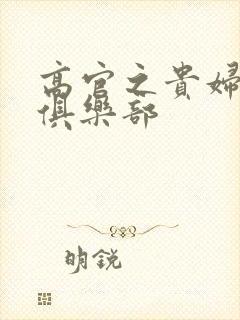 高官之貴婦
俱樂部
明銳